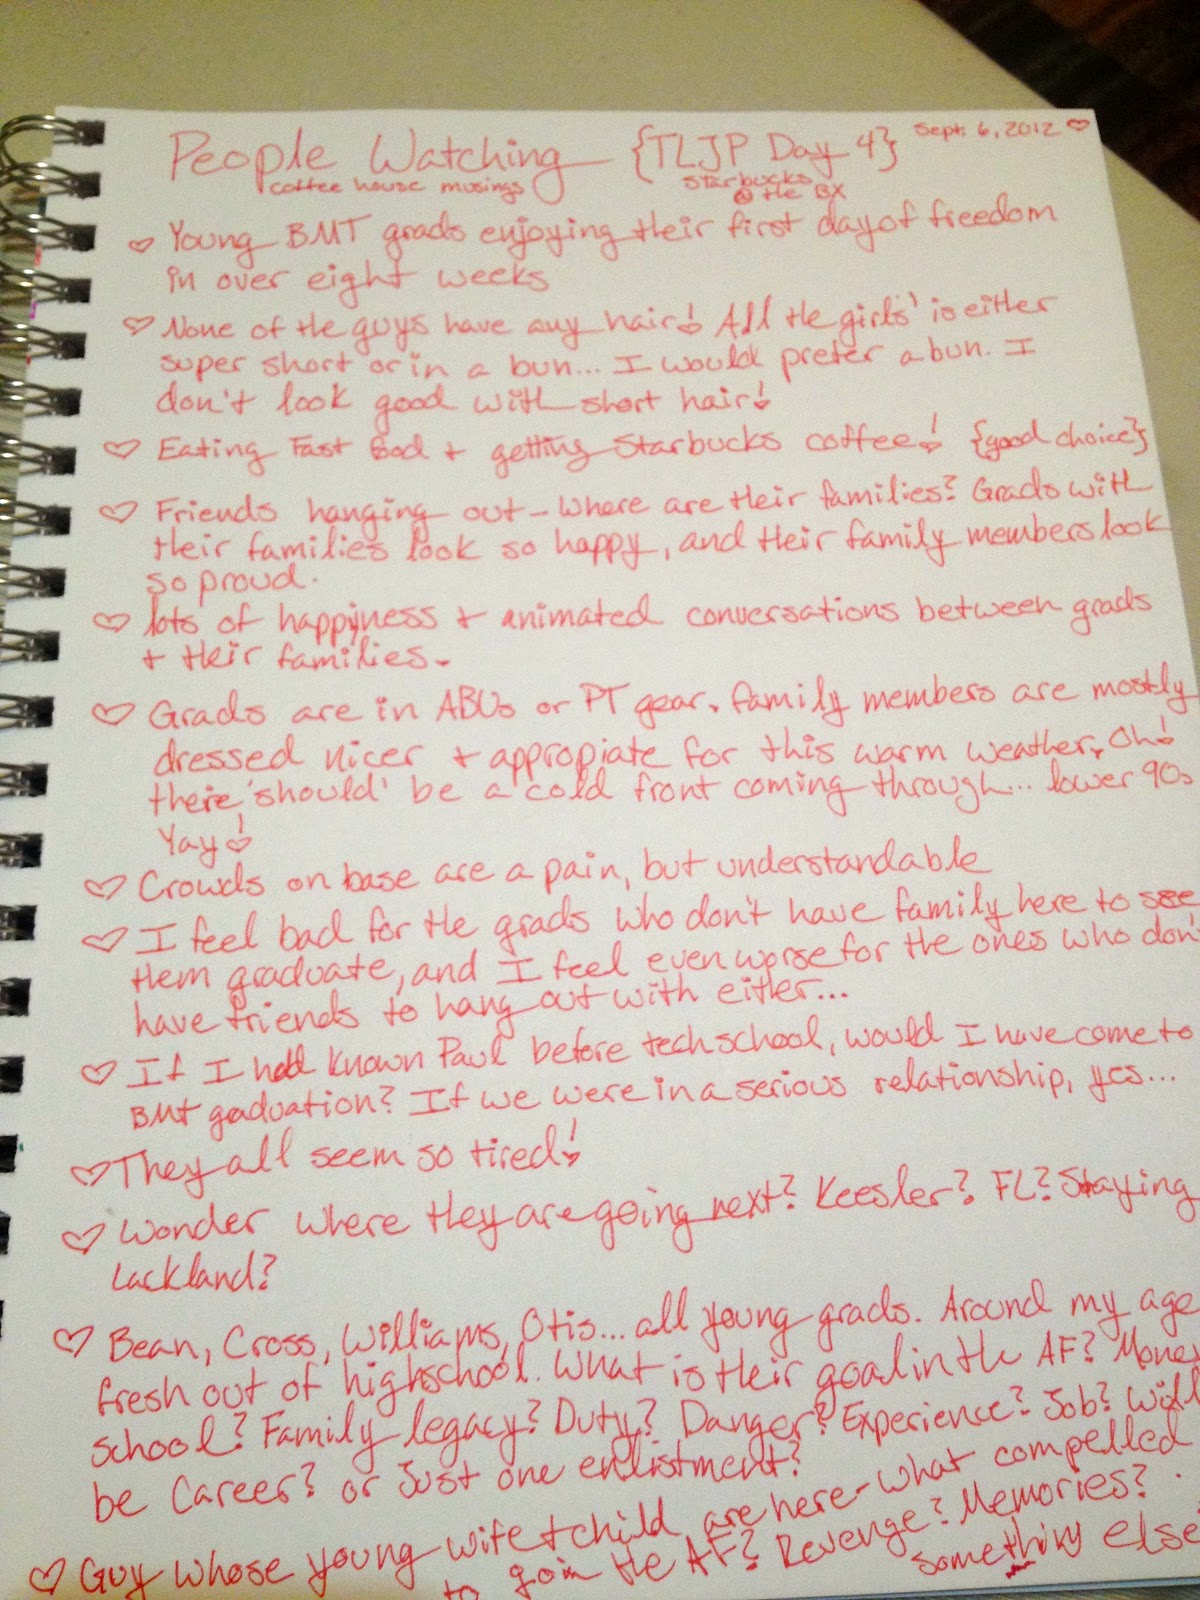 People Watching {TLJP Day 4} Sept. 6, 2012 ♡
coffee house musings Starbucks
@ the BX
♡ Young BMT grads enjoying their first day of freedom
in over eight weeks
♡ None of the guys have any hair! All the girls' is either
super short or in a bun... I would prefer a bun. I
don't look good with short hair!
♡ Eating Fast food + getting Starbucks coffee! {good choice}
♡ Friends hanging out - Where are their families? Grads with
their families look so happy, and their family members look
so proud.
♡ lots of happyness + animated conversations between grads
+ their families.
♡ Grads are in ABUs or PT gear, family members are mostly
dressed nicer + appropiate for this warm weather, Oh!
there 'should' be a cold front coming through... lower 90s
Yay!
♡ Crowds on base are a pain, but understandable
♡ I feel bad for the grads who don't have family here to see
them graduate, and I feel even worse for the ones who don'
have friends to hang out with either...
♡ If I had known Paul before tech school, would I have come to
BMT gaduation? If we were in a serious relationship, yes...
♡ They all seem so tired!
♡ Wonder where they are going next? Keesler? FL? Staying
Lackland?
♡ Bean, Cross, Williams, Otis... all young grads. Around my age
fresh out of highschool. What is their goal in the AF? Money
school? Family legacy? Duty? Danger? Experience? Job? Will
be Career? or Just one enlistment?
♡ Guy whose young wife + child are here - what compelled
to join the AF? Revenge? Memories?
something else